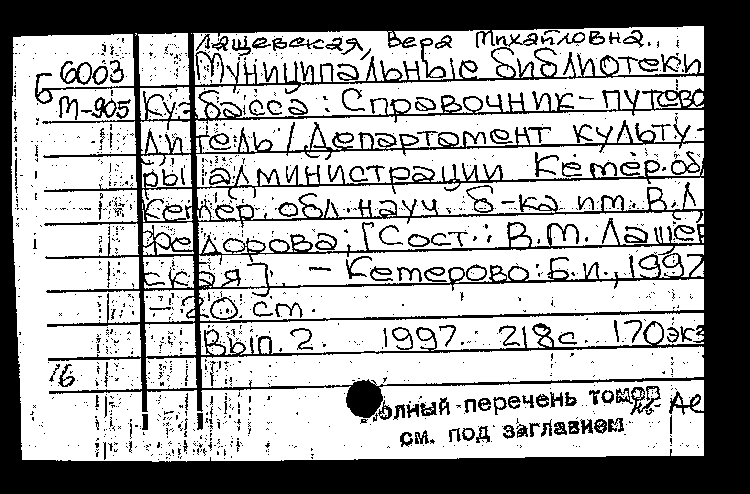 Лащевская, Вера Михайловна.
Б 6003 Муниципальные библиотеки
М-905 Кузбасса : Справочник-путево
дитель / Департамент культу-
ры администрации Кемер. обл
Кемер. обл. науч. б-ка им. В.Д
Федорова; [Сост.: В.М. Лащев
ская]. - Кемерово: Б.и., 1997
- 20 см.
Вып. 2. 1997. 218с. 170экз
16
Полный перечень томов
см. под заглавием